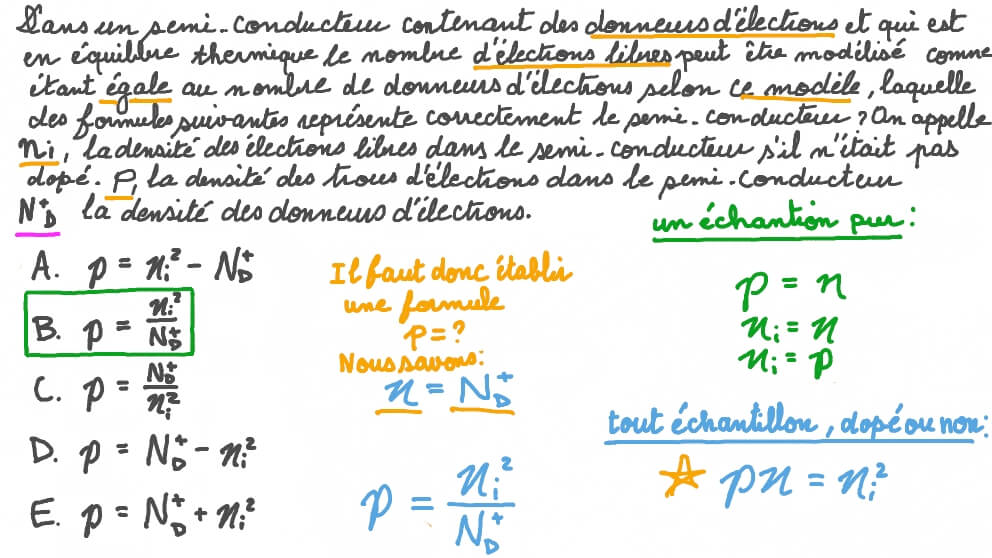 Dans un semi-conducteur contenant des donneurs d'élections et qui est
en équilibre thermique le nombre d'élections libres peut être modélisé comme
étant égale au nombre de donneurs d'élections selon ce modèle, laquelle
des formules suivantes représente correctement le semi-conducteur ? On appelle
ni, la densité des élections libres dans le semi-conducteur s'il n'était pas
dopé. p, la densité des trous d'élections dans le semi-conducteur
N⁺D la densité des donneurs d'élections.
un échantion pur :
A. p = ni² - N⁺D
B. p = ni² / N⁺D
C. p = N⁺D / ni²
D. p = N⁺D - ni²
E. p = N⁺D + ni²
Il faut donc établir
une formule
p = ?
Nous savons :
n = N⁺D
p = ni² / N⁺D
p = n
ni = n
ni = p
tout échantillon, dopé ou non :
☆ pn = ni²